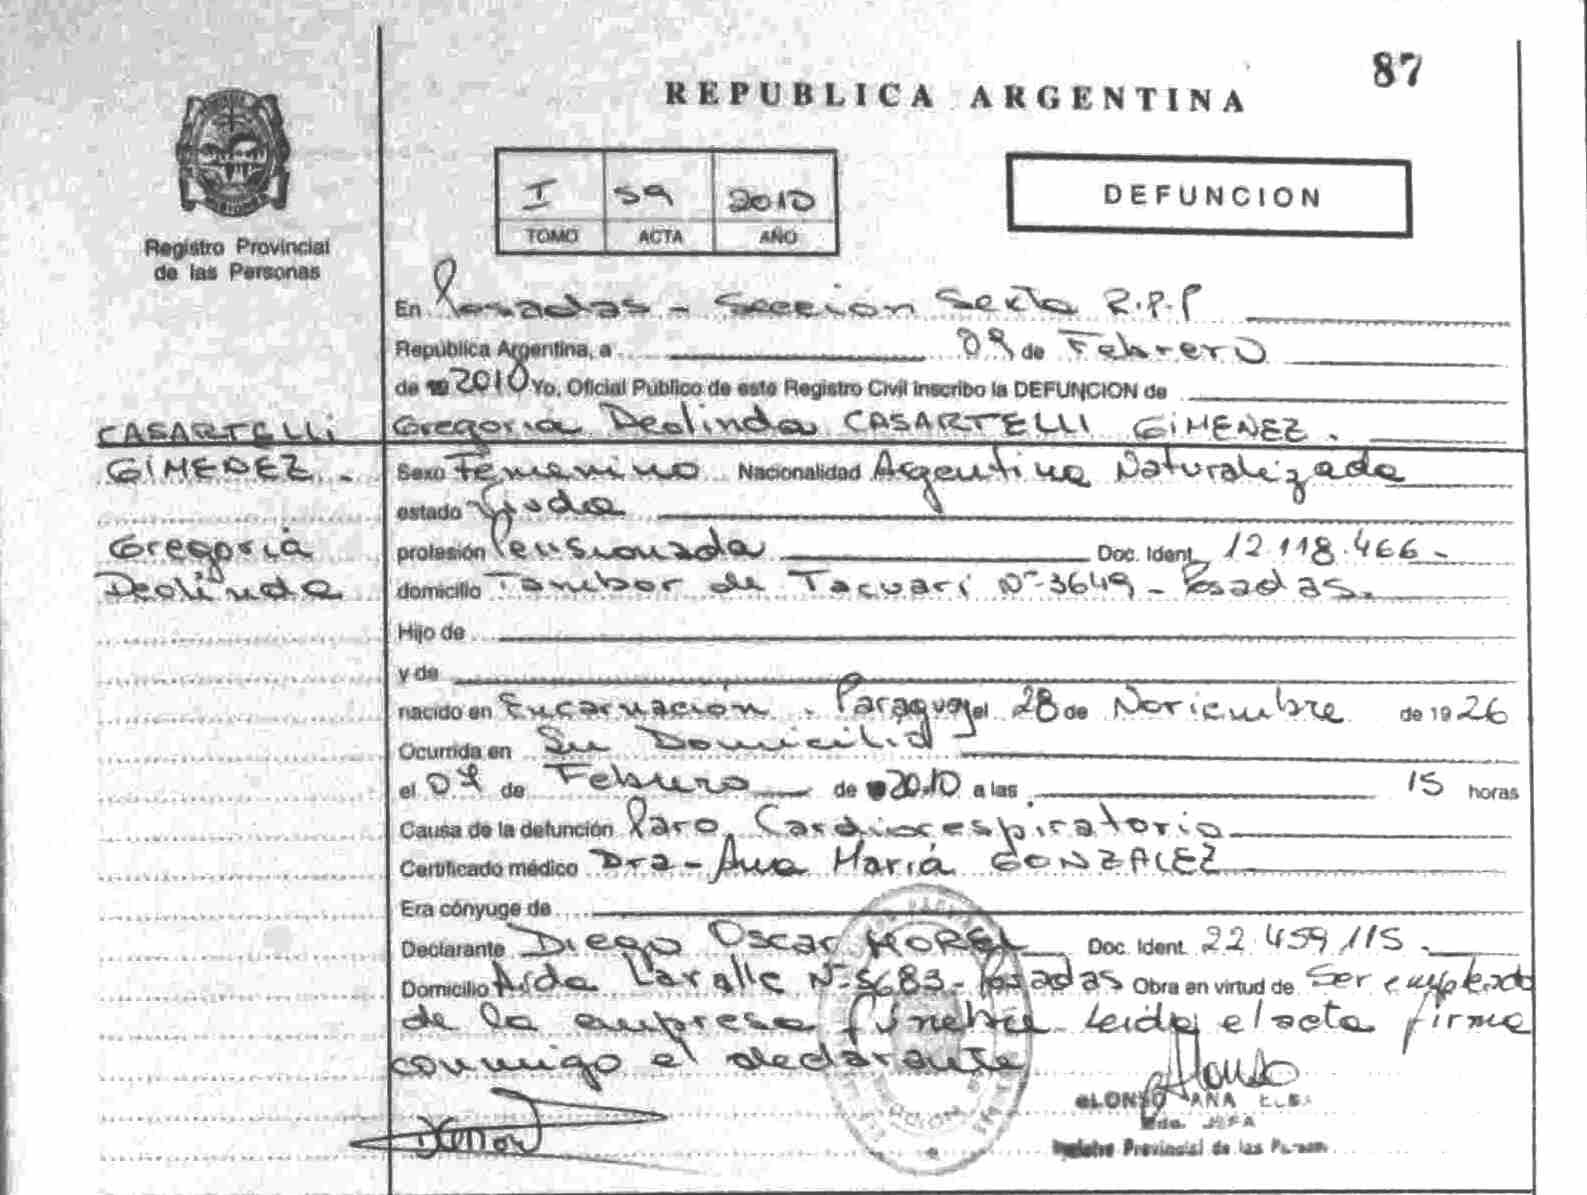 87
REPUBLICA ARGENTINA
I 59 2010
TOMO ACTA AÑO
DEFUNCION
Registro Provincial
de las Personas
En Posadas - Sección Sexta R.P.P
República Argentina, a 09 de Febrero
de 2010 Yo, Oficial Público de este Registro Civil inscribo la DEFUNCION de
CASARTELLI
Gregoria Deolinda CASARTELLI GIMENEZ.
GIMENEZ.
Sexo Femenino Nacionalidad Argentina Naturalizada
estado Viuda
Gregoria
profesión Pensionada Doc. Ident. 12.118.466-
Deolinda
domicilio Tambor de Tacuari Nº 3649 - Posadas.
Hijo de
y de
nacido en Encarnación - Paraguay el 28 de Noviembre de 1926
Ocurrida en Su Domicilio
el 07 de Febrero de 2010 a las 15 horas
Causa de la defunción Paro Cardiorespiratorio
Certificado médico Dra - Ana María GONZALEZ
Era cónyuge de
Declarante Diego Oscar MOREL Doc. Ident. 22.459.115.
Domicilio Aida Laralle Nº 5683 - Posadas Obra en virtud de Ser empleado
de la empresa fúnebre leida el acta firma
conmigo el declarante
Alonso
ALONSO ANA ELSA
JEFA
Registro Provincial de las Person